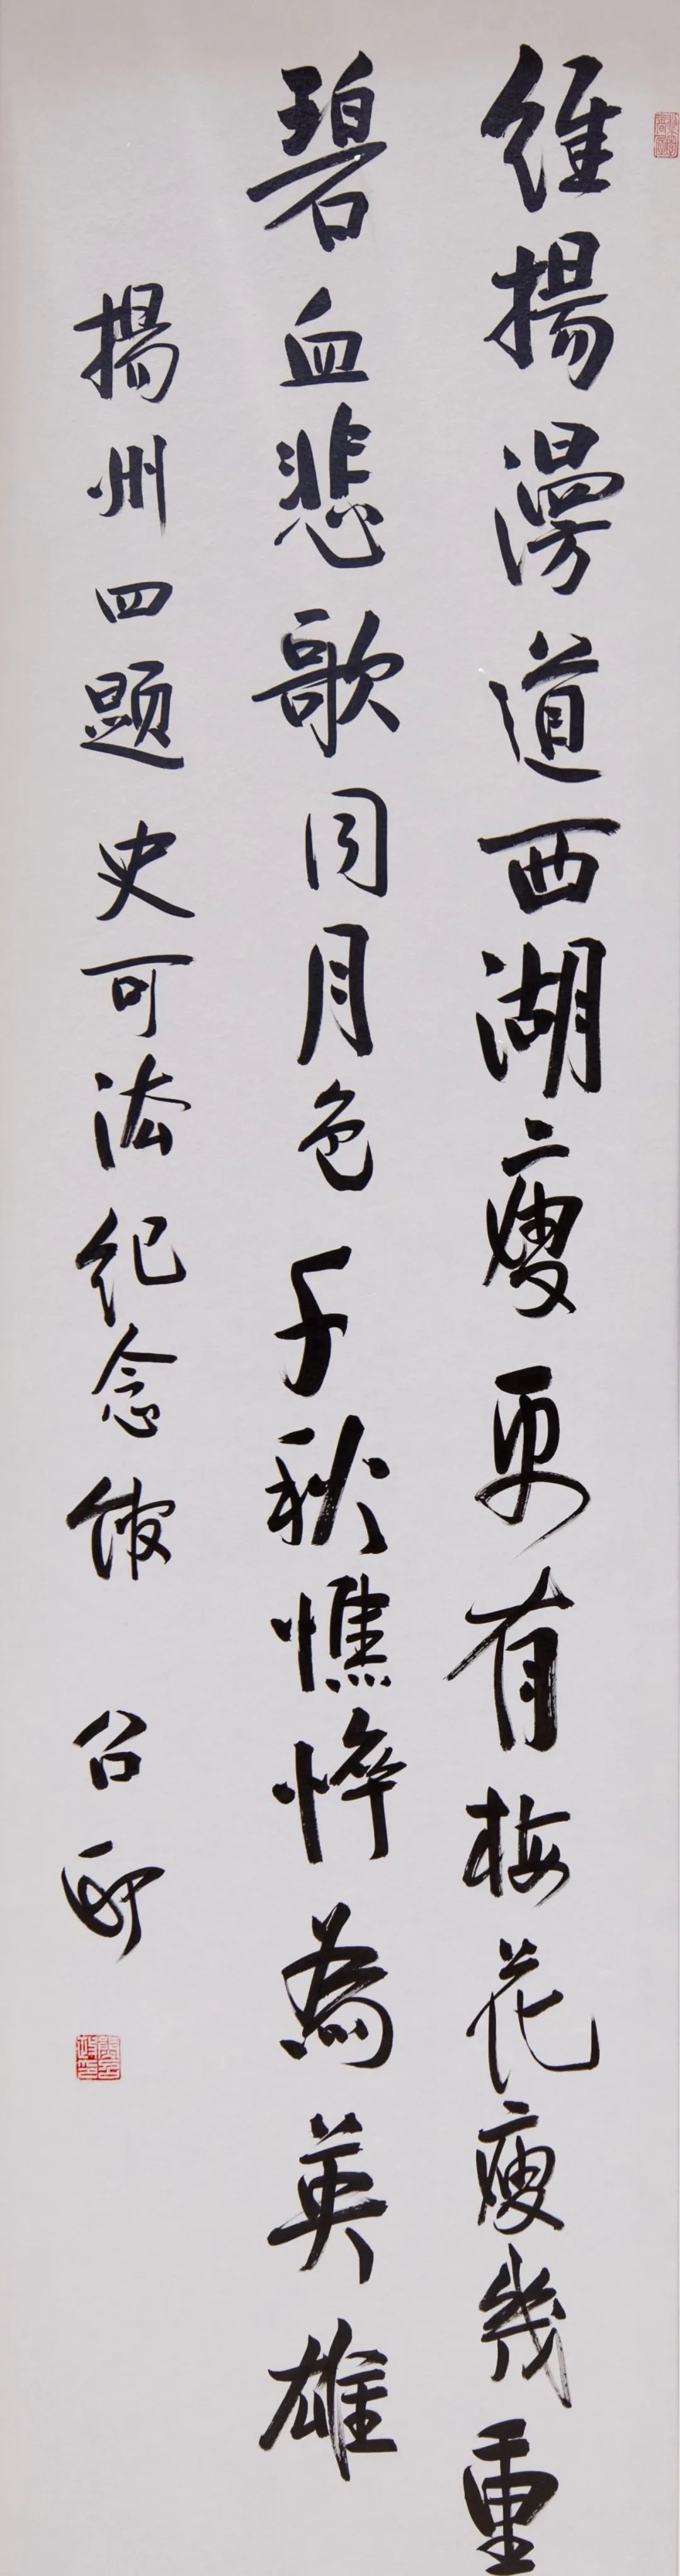 維揚漫道西湖瘦更有梅花瘦幾重
碧血悲歌同月色千秋憔悴為英雄
揚州四题史可法纪念馆 召邸